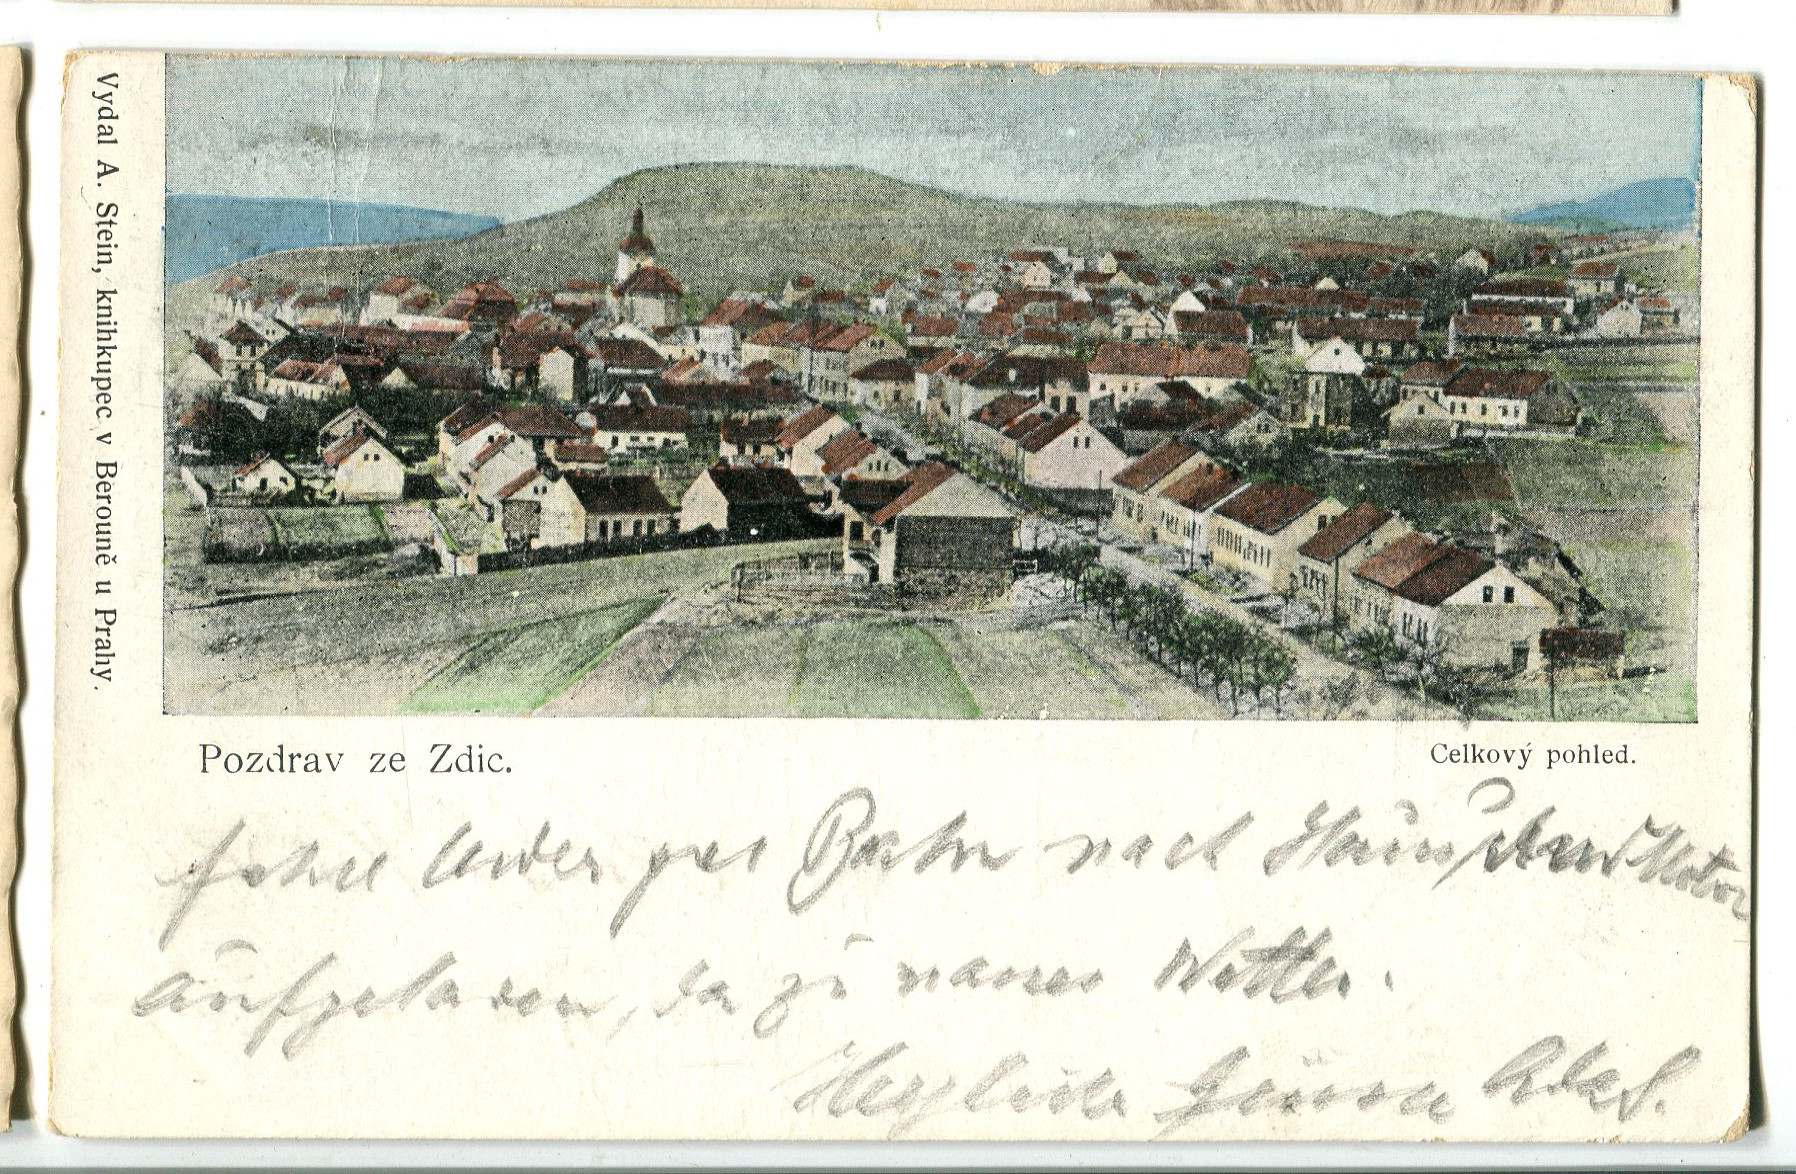 Vydal A. Stein, knihkupec v Berouně u Prahy.
Pozdrav ze Zdic.
Celkový pohled.
fahre leider per Bahn nach Motor
aufgeladen, da zu nasses Wetter.
Herzliche Grüsse